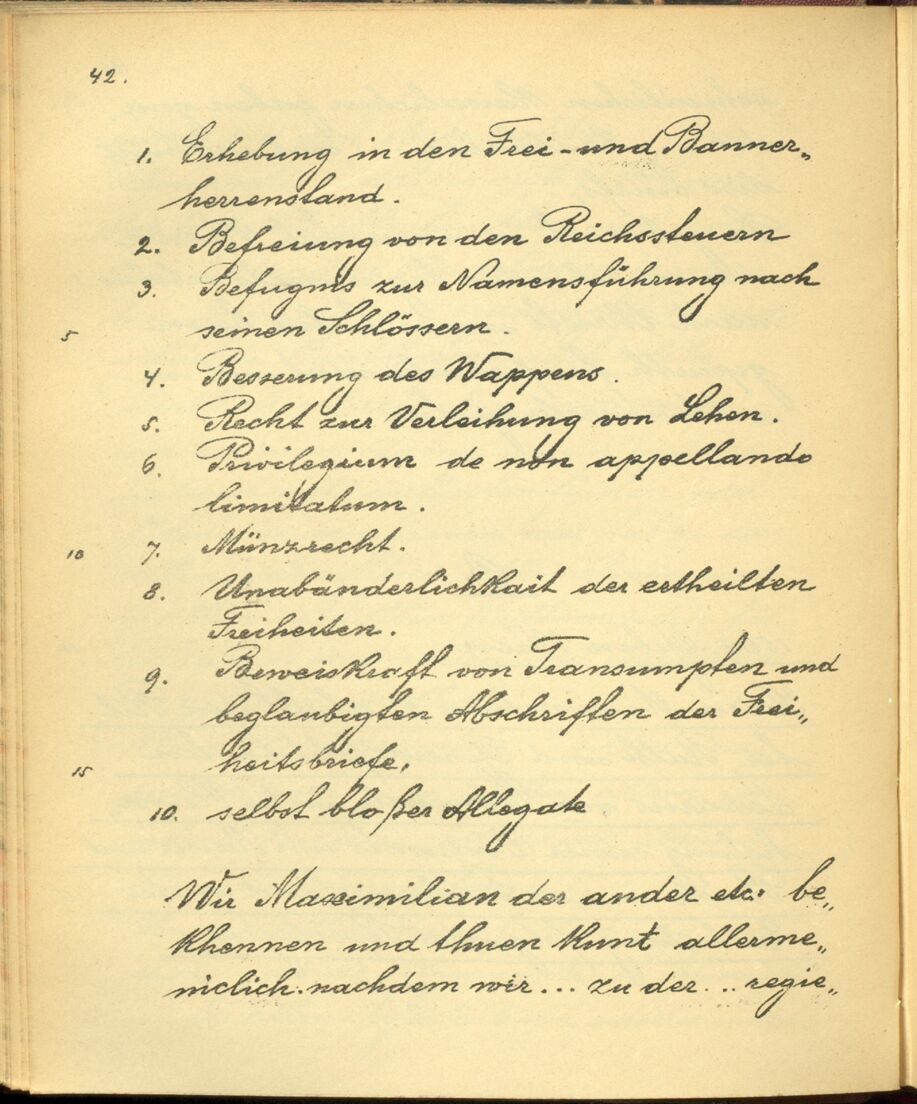 42.
1. Erhebung in den Frei- und Banner„
herrenstand.
2. Befreiung von den Reichssteuern
3. Befugnis zur Namensführung nach
5 seinen Schlössern.
4. Besserung des Wappens.
5. Recht zur Verleihung von Lehen.
6. Privilegium de non appellando
limitatum.
10 7. Münzrecht.
8. Unabänderlichkait der ertheilten
Freiheiten.
9. Beweiskraft von Transumpten und
beglaubigten Abschriften der Frei„
15 heitsbriefe,
10. selbst bloßer Allegate
Wir Maximilian der ander etc: be„
khennen und thuen kunt allerme„
niclich. nachdem wir... zu der... regie„